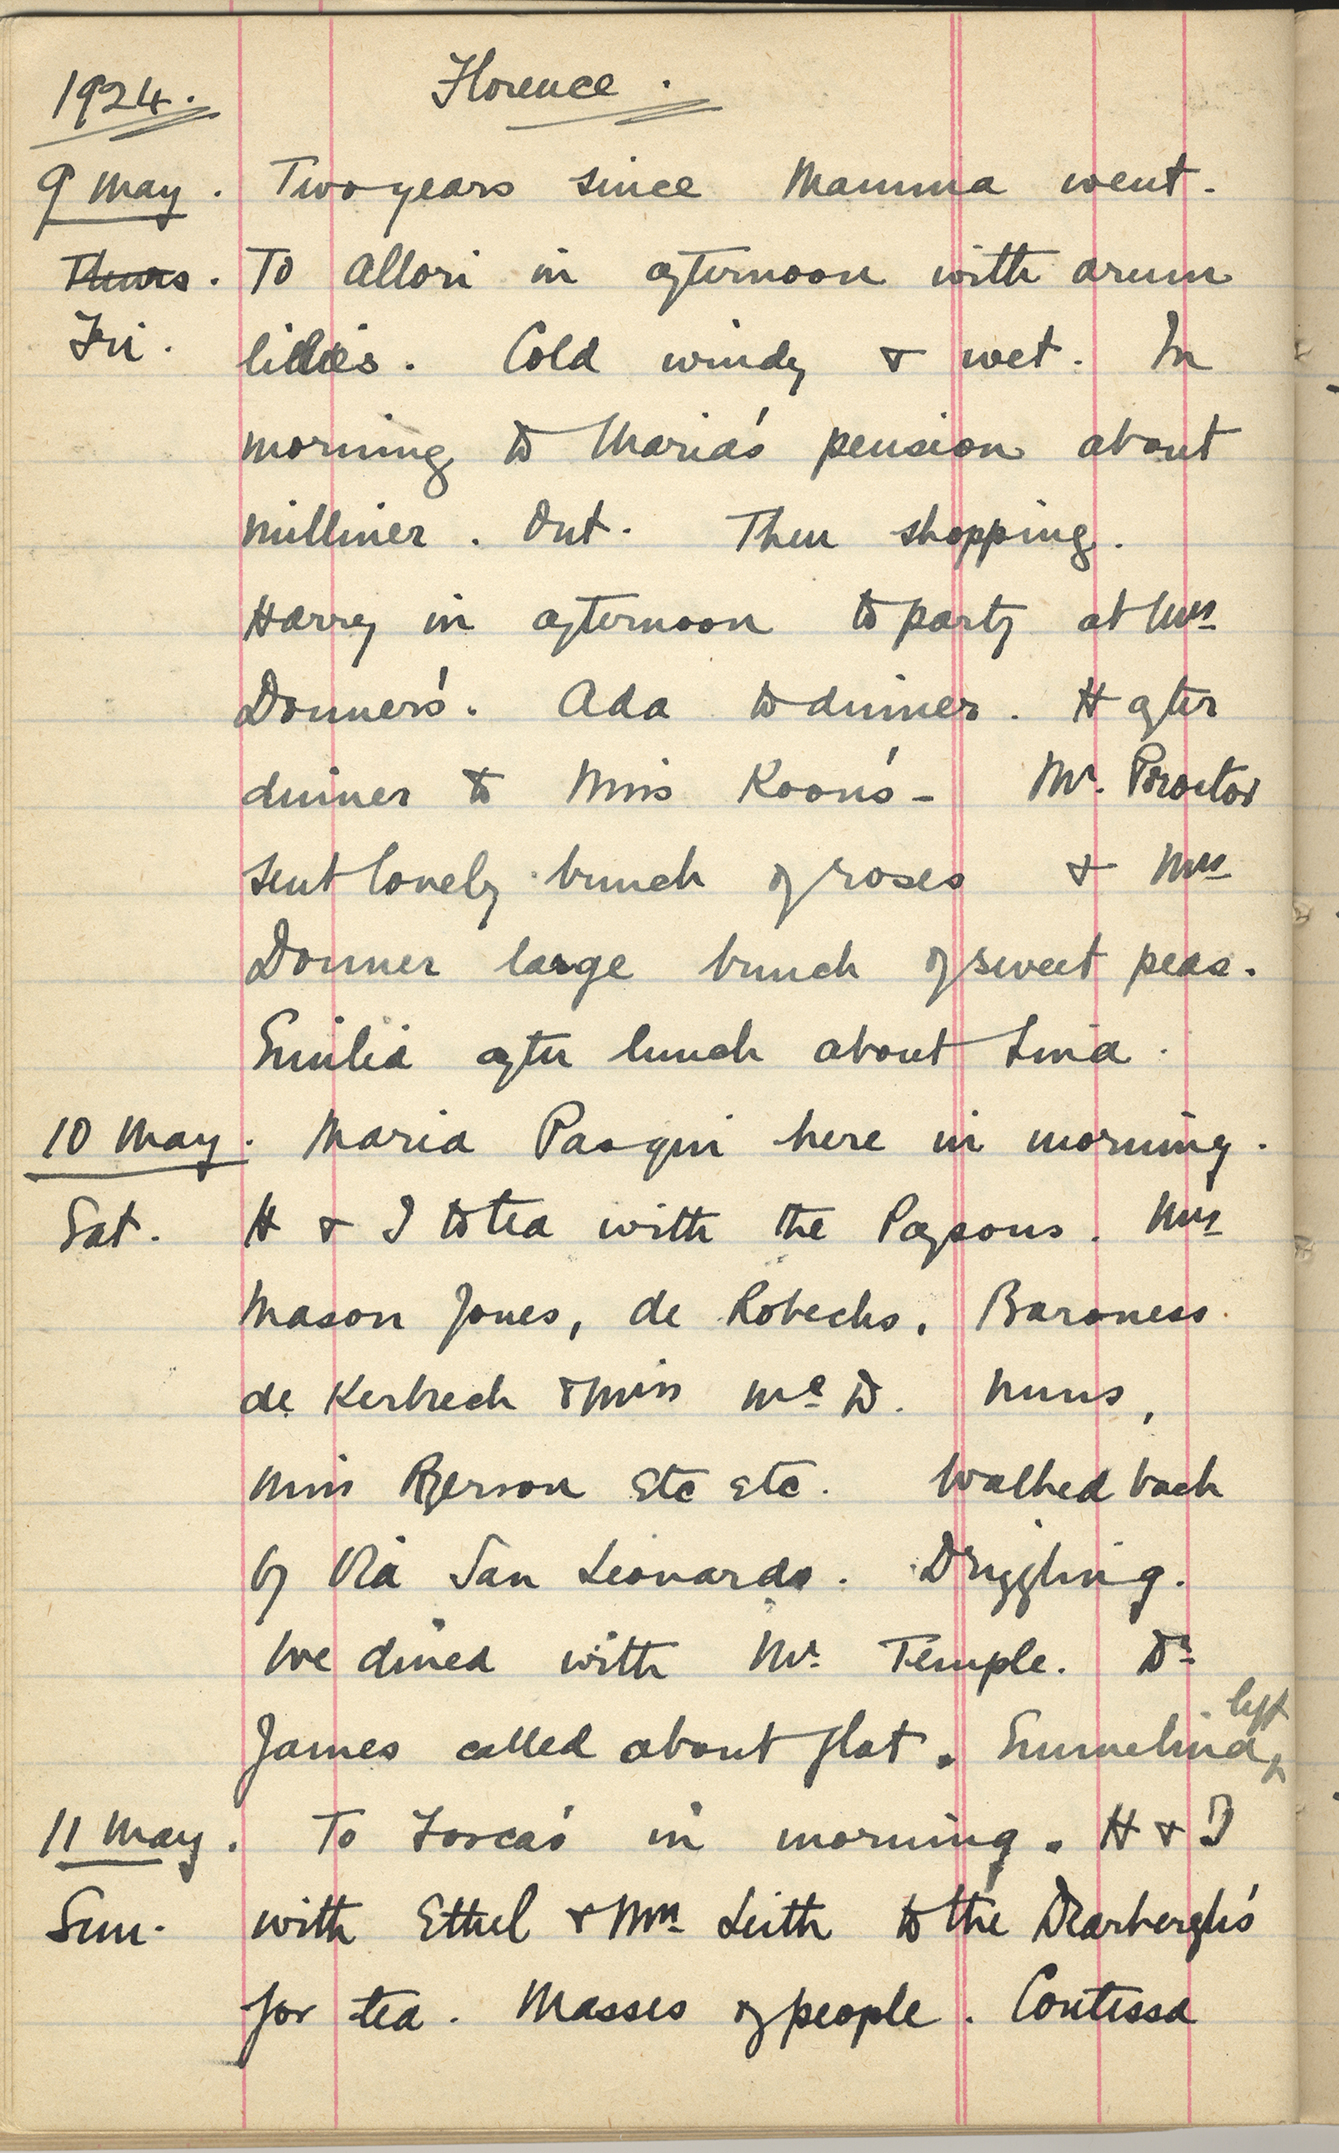 1924. Florence.
9 May. Two years since Mamma went.
Thurs. To Allori in afternoon with arum
Fri. lilies. Cold windy & wet. In
morning to Maria's pension about
milliner. Out. Then shopping.
Harry in afternoon to party at Mrs
Donner's. Ada to dinner. H after
dinner to Miss Koon's - Mr. Proctor
sent lovely bunch of roses & Mrs
Donner large bunch of sweet peas.
Emilia after lunch about Lina.
10 May. Maria Pasqui here in morning.
Sat. H & I to tea with the Paysons. Mrs
Mason Jones, de Robecks, Baroness
de Kerbrech & Miss Mc D. Nuns,
Miss etc etc. Walked back
by Via San Leonardo. Drizzling.
We dined with Mr. Temple. Dr
James called about flat. Ermelinda left
11 May. To Tosca's in morning. H & I
Sun. with Ethel & Mrs Leith to the Dearbergh's
for tea. Masses of people. Contessa